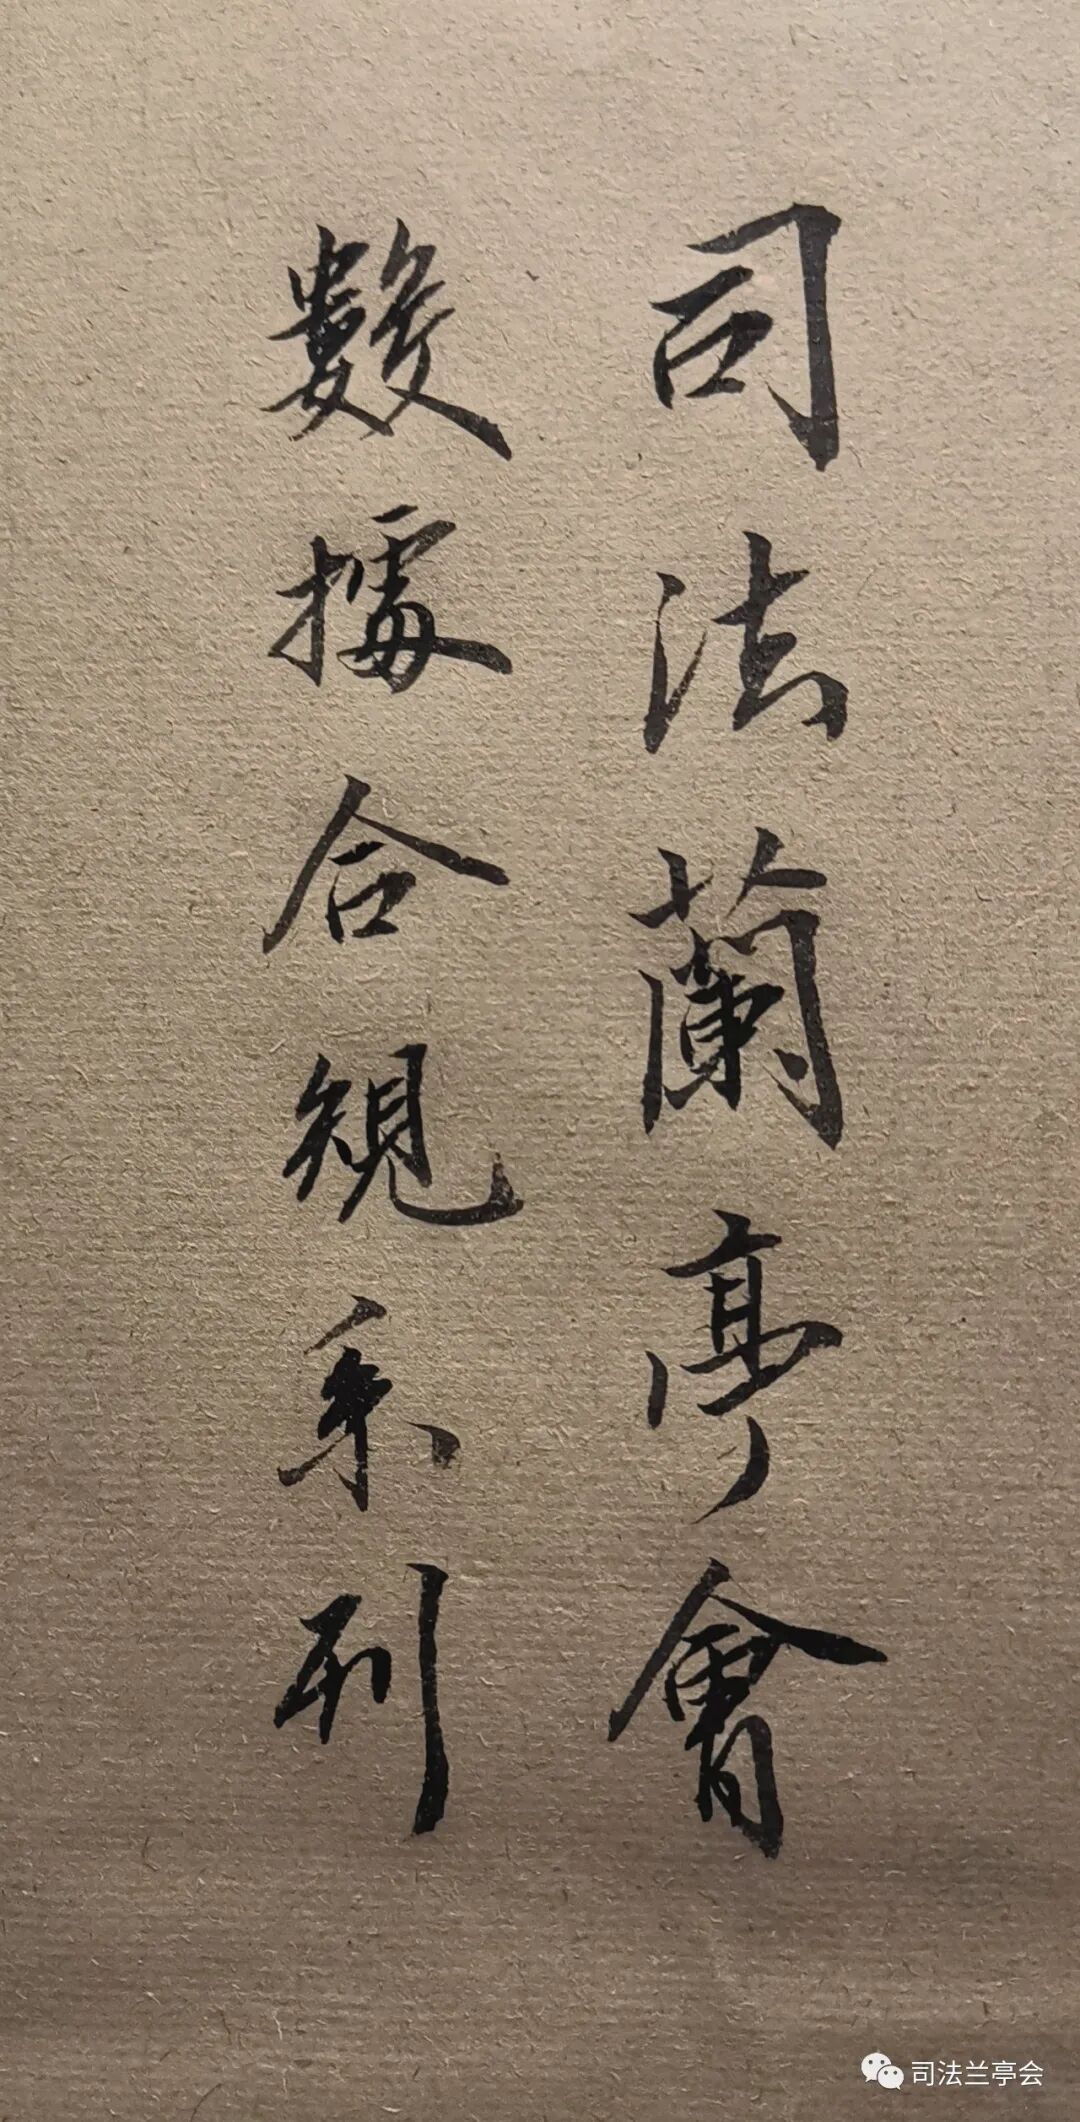 司法蘭亭會
數據合規系列
司法兰亭会